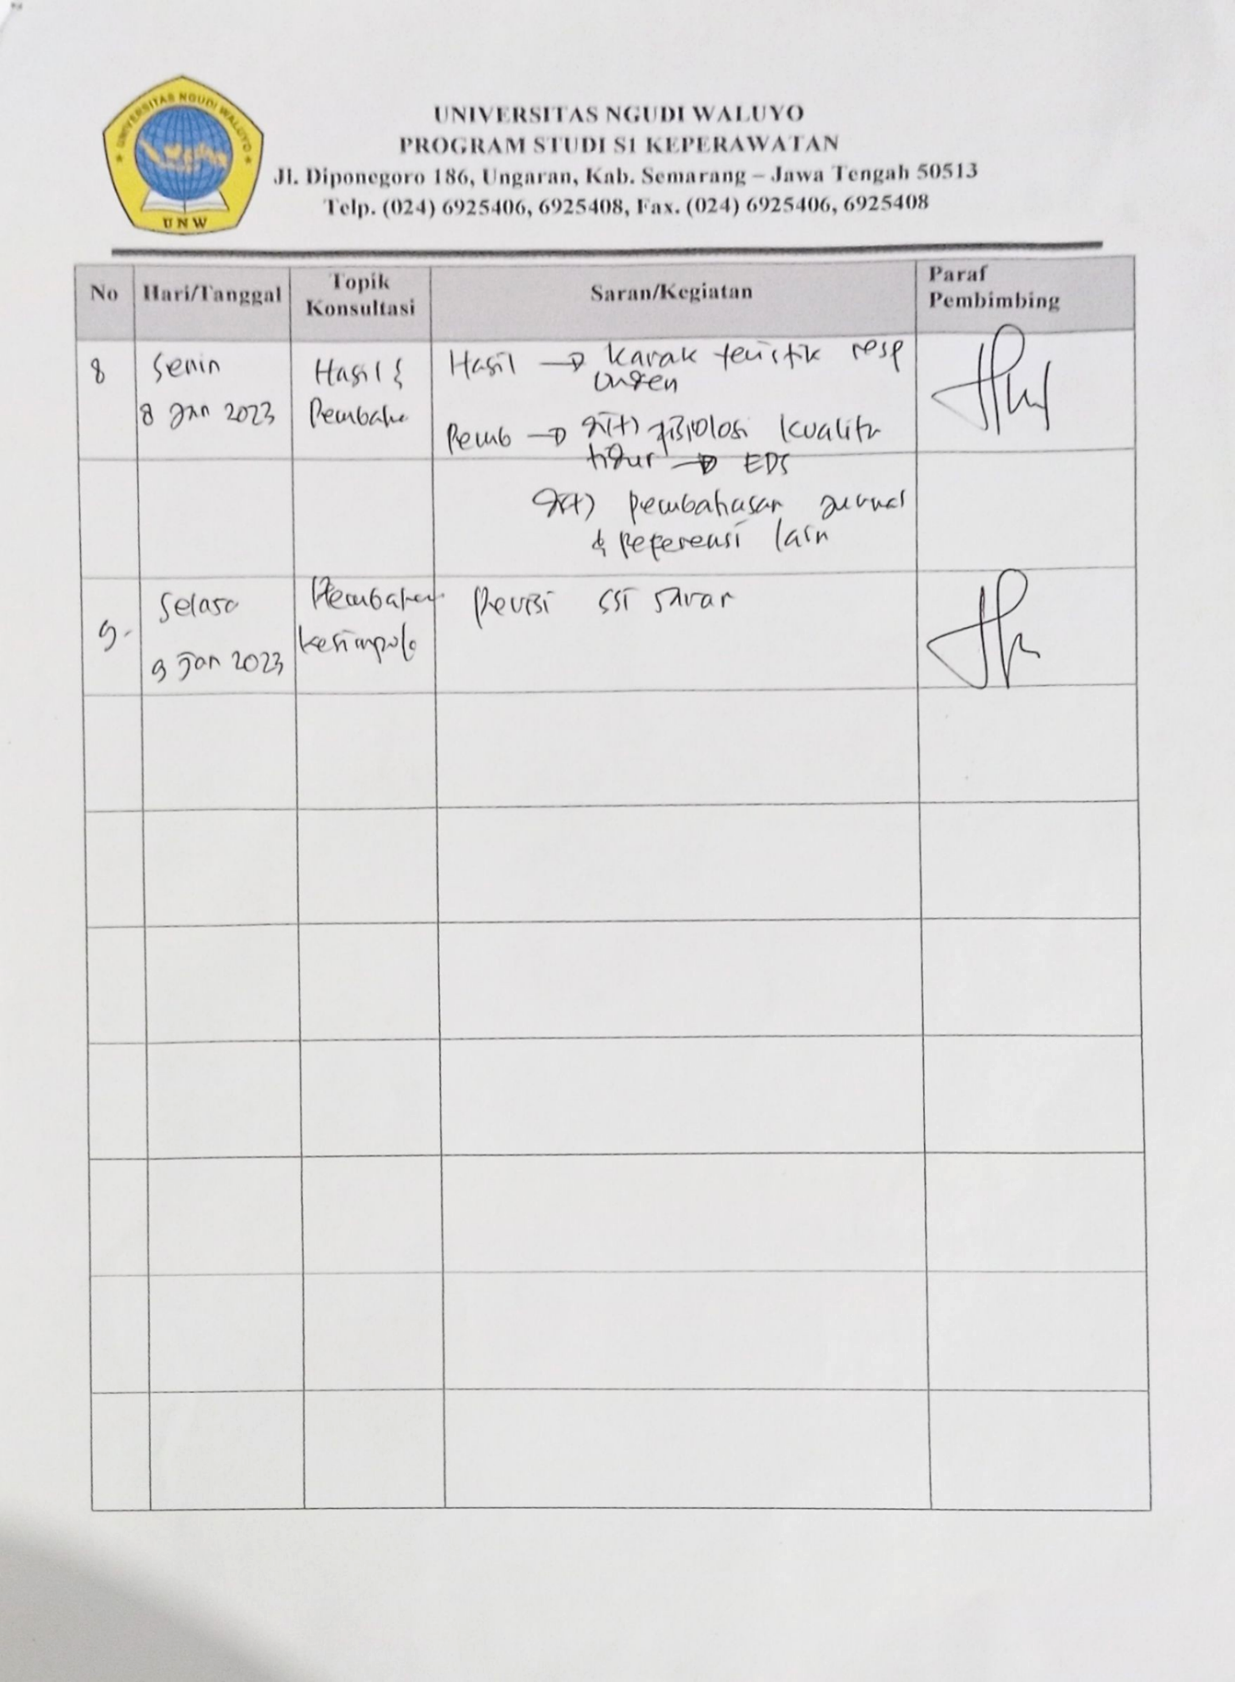 UNIVERSITAS NGUDI WALUYO
UNW
UNIVERSITAS NGUDI WALUYO
PROGRAM STUDI S1 KEPERAWATAN
Jl. Diponegoro 186, Ungaran, Kab. Semarang – Jawa Tengah 50513
Telp. (024) 6925406, 6925408, Fax. (024) 6925406, 6925408
No
Hari/Tanggal
Topik
Konsultasi
Saran/Kegiatan
Paraf
Pembimbing
8
Senin
8 Jan 2023
Hasil &
Pembaha
Hasil → Karakteristik resp
onden
Pemb → fisiologi kualita
tidur → EDS
pembahasan jurnal
& referensi lain
9.
Selasa
9 Jan 2023
Pembahan
Kesimpula
Revisi saran